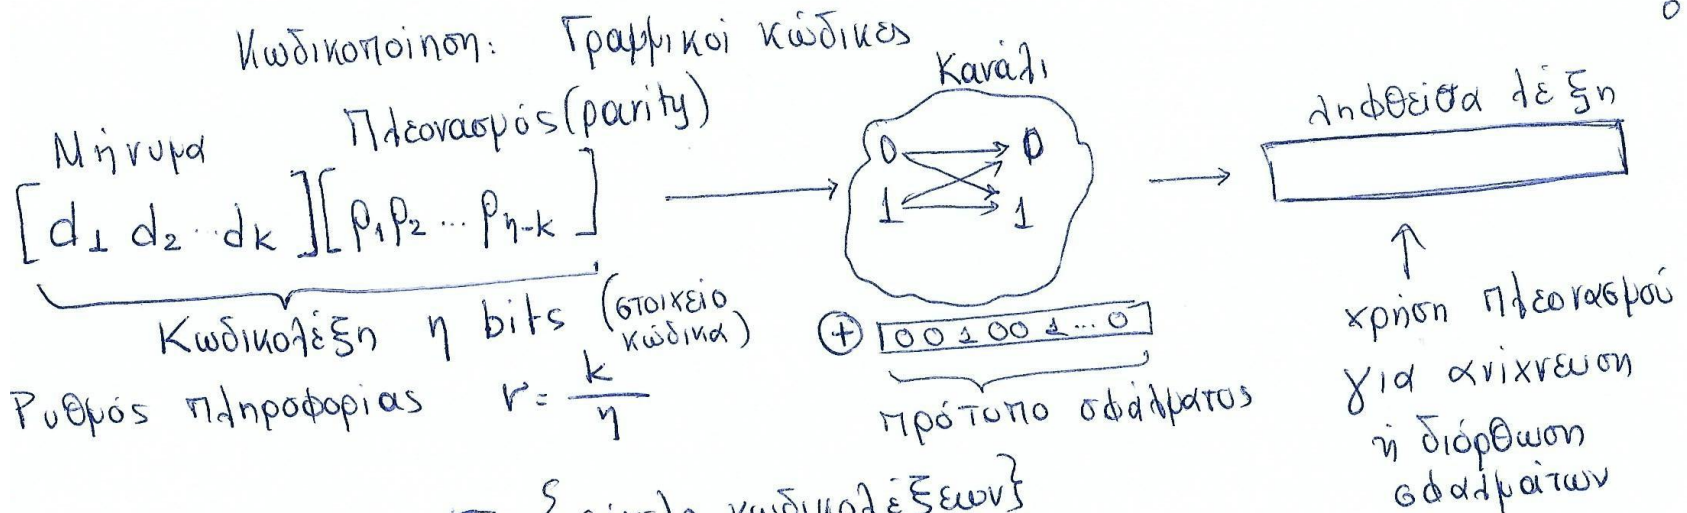 Κωδικοποίηση: Γραμμικοί κώδικες
Μήνυμα Πλεονασμός (parity)
[d1 d2 ... dk][ρ1 ρ2 ... ρη-k]
Κωδικολέξη η bits (στοιχείο κώδικα)
Ρυθμός πληροφορίας r = k/η
Κανάλι
0 0
1 1
⊕ 0 0 1 0 0 1 ... 0
πρότυπο σφάλματος
ληφθείσα λέξη
χρήση πλεονασμού
για ανίχνευση
ή διόρθωση
σφαλμάτων
κωδικολέξεων}